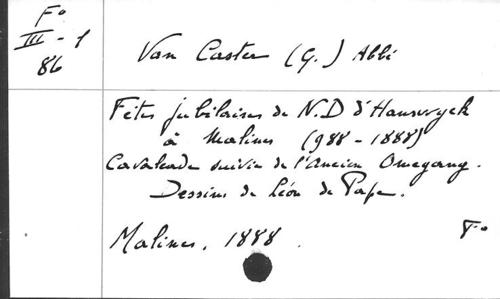 Fº
III - 1
86
Van Caster (G.) Abbé
Fêtes jubilaires de N.D d'Hanswyck
à Malines (988-1888)
Cavalcade suivie de l'ancien Omegang.
Dessins de Léon de Pape.
Malines, 1888.
Fº